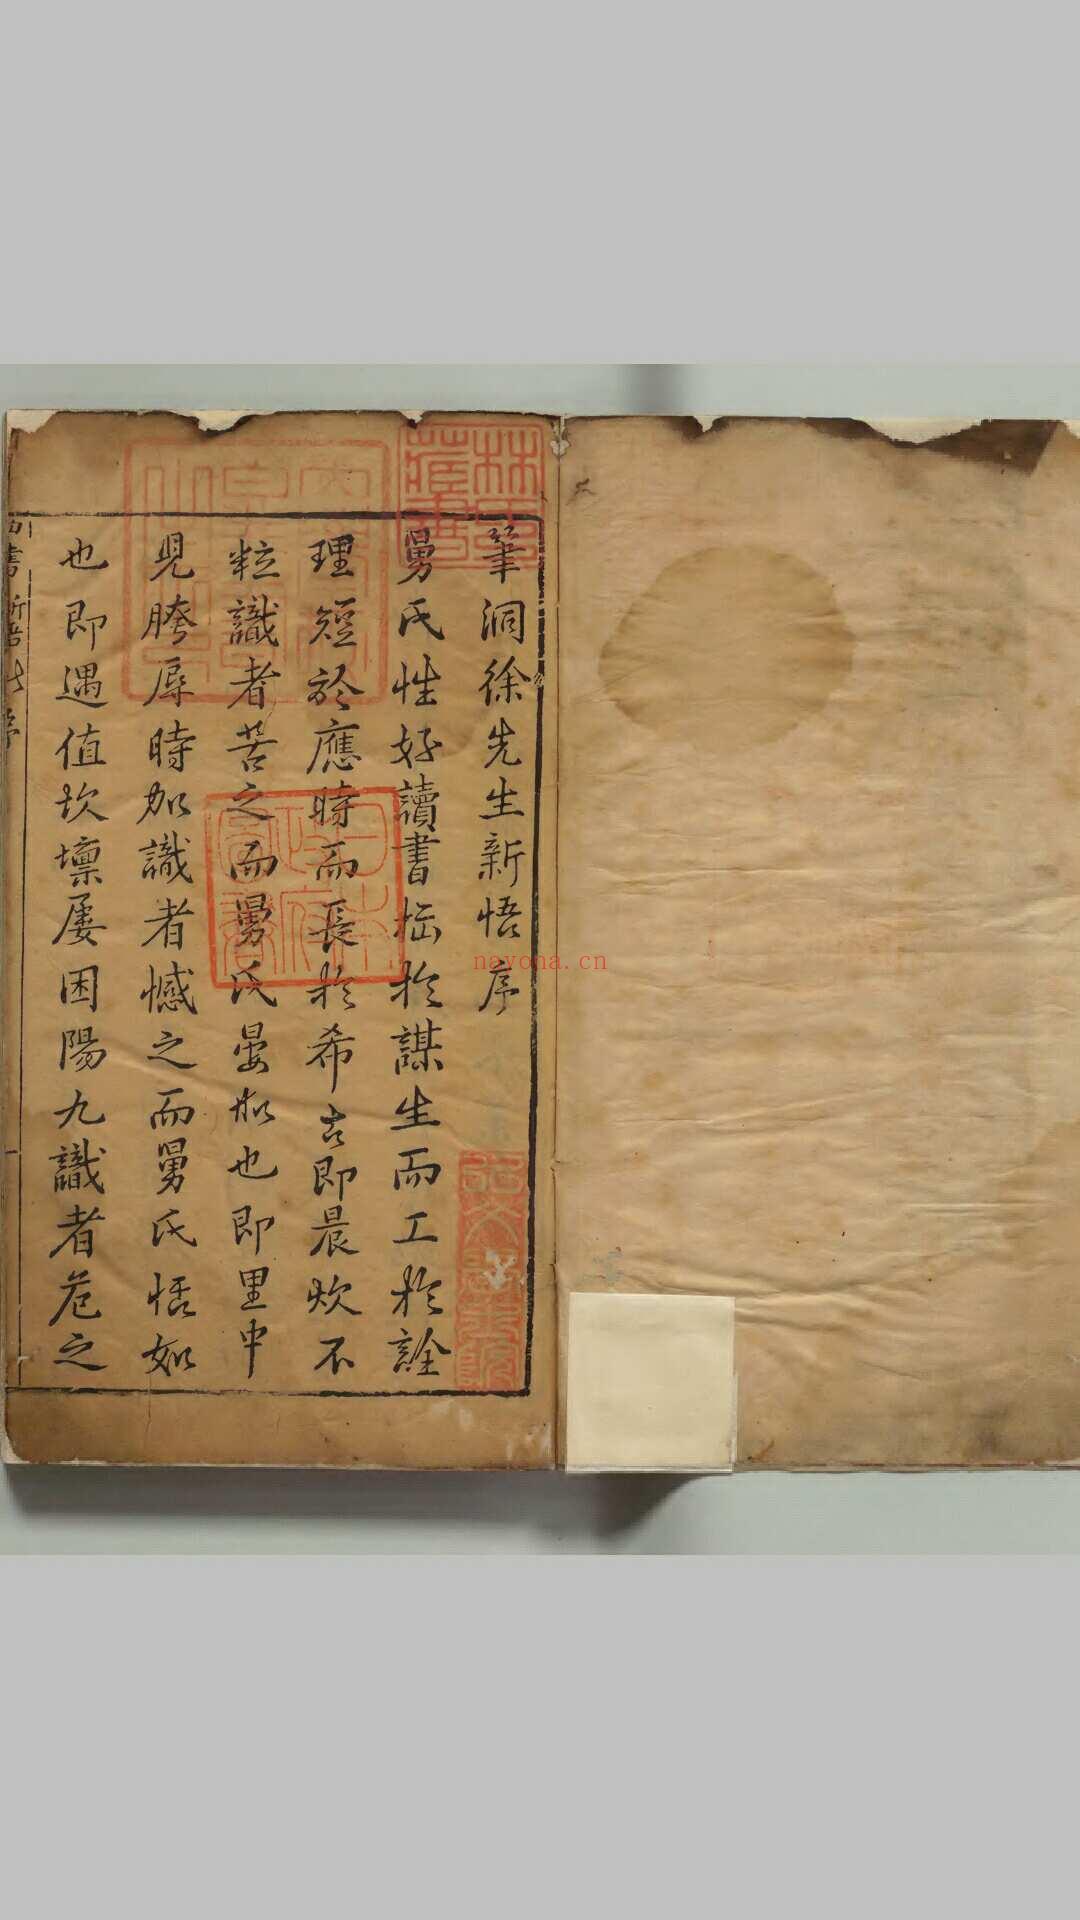 筆洞徐先生新悟序
舅氏性好讀書拙於謀生而工於詮
理短於應時而長於希古即晨炊不
粒識者苦之而舅氏晏如也即里中
見胯辱時加識者憾之而舅氏恬如
也即遇值坎壈屡困陽九識者危之
林氏
藏書
日本
政府
圖書
nayona.cn